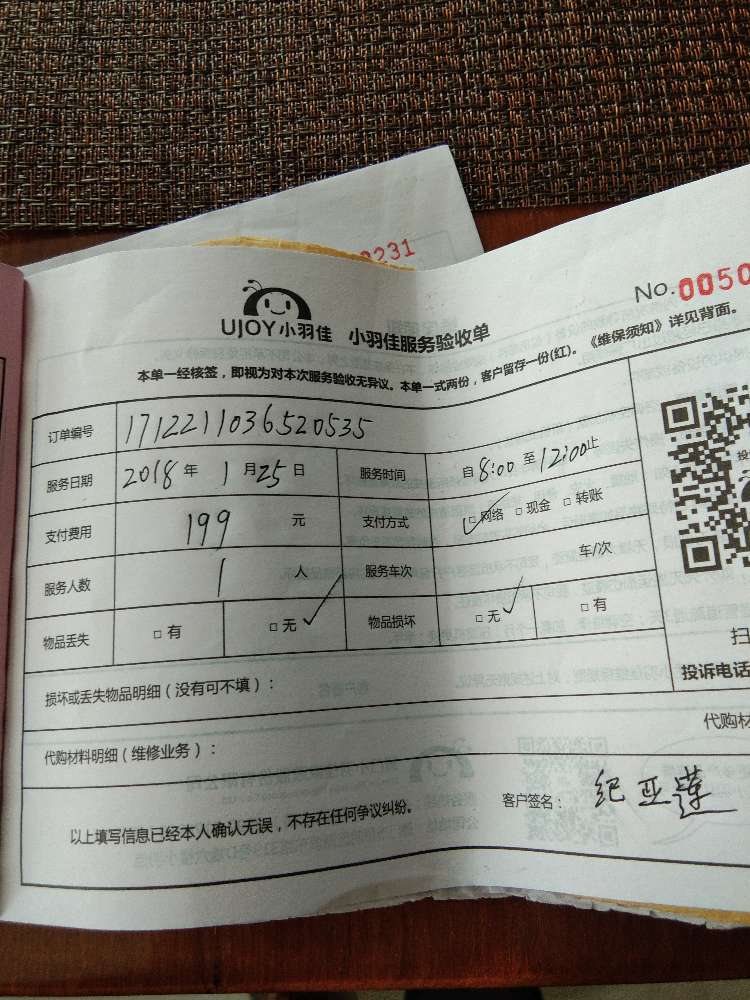 0231
No.0050
UJOY小羽佳 小羽佳服务验收单
本单一经核签，即视为对本次服务验收无异议。本单一式两份，客户留存一份(红)。《维保须知》详见背面。
订单编号 1712211036520535
服务日期 2018年1月25日 服务时间 自8:00至12:00止
支付费用 199元 支付方式 ☑网络 □现金 □转账
服务人数 1人 服务车次 车/次
物品丢失 □有 □无✓ 物品损坏 □无✓ □有
扫
投诉电话
损坏或丢失物品明细（没有可不填）：
代购材
代购材料明细（维修业务）：
以上填写信息已经本人确认无误，不存在任何争议纠纷。 客户签名：纪亚莲